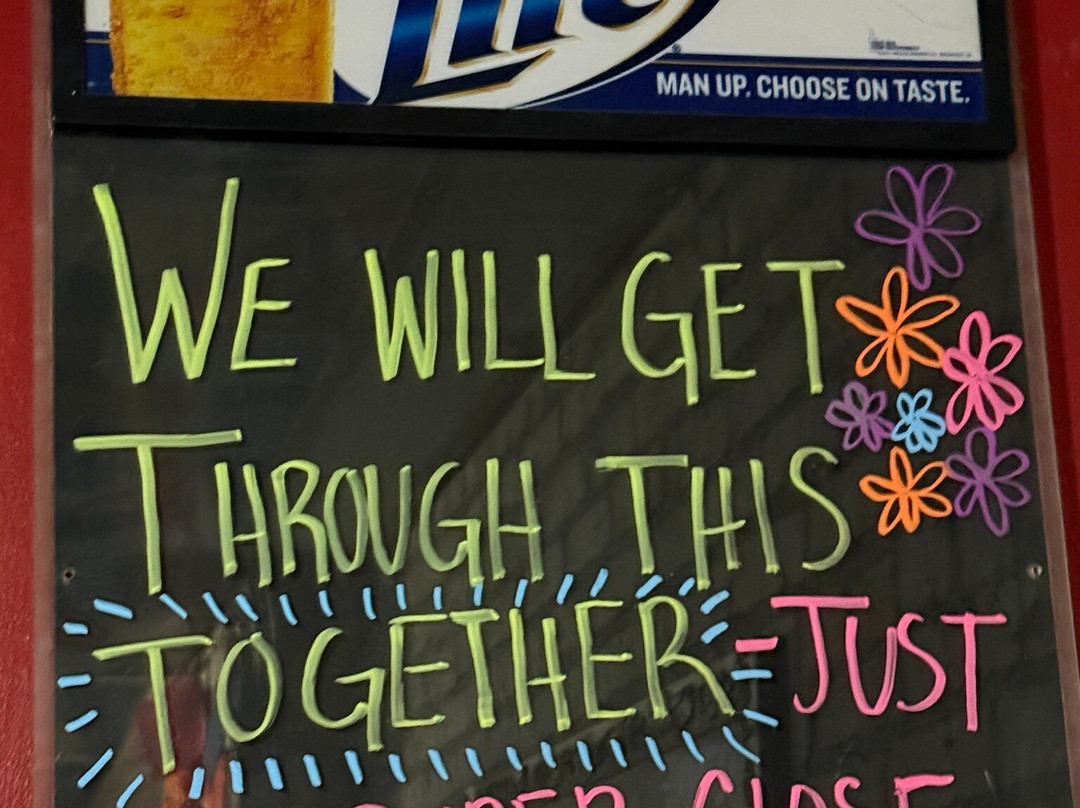 Lite
MAN UP. CHOOSE ON TASTE.
WE WILL GET
THROUGH THIS
TOGETHER-JUST
CLOSE